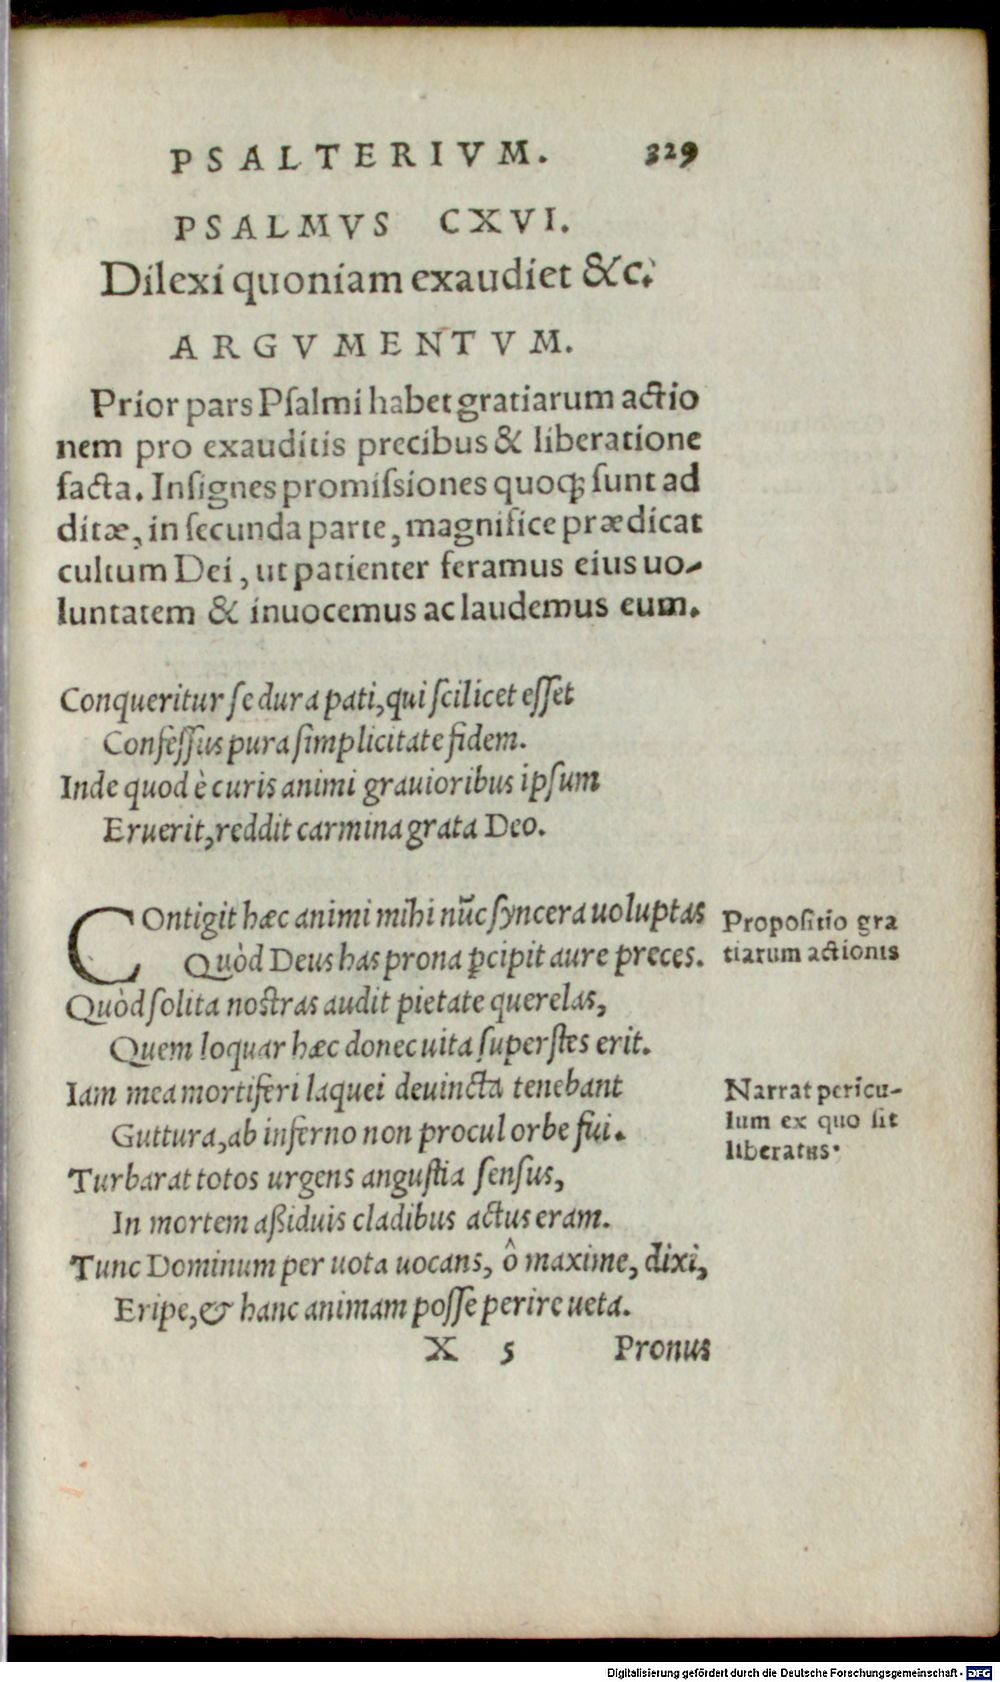 PSALTERIVM. 329
PSALMVS CXVI.
Dilexi quoniam exaudiet &c.
ARGVMENTVM.
Prior pars Pſalmi habet gratiarum actio
nem pro exauditis precibus & liberatione
facta. Inſignes promiſsiones quoqꝫ ſunt ad
ditæ, in ſecunda parte, magnifice prædicat
cultum Dei, ut patienter feramus eius uo-
luntatem & inuocemus ac laudemus eum.
Conqueritur ſe dura pati, qui ſcilicet eſſet
Confeſſus pura ſimplicitate fidem.
Inde quod è curis animi grauioribus ipſum
Eruerit, reddit carmina grata Deo.
COntigit hæc animi mihi nūc ſyncera uoluptas
Quòd Deus has prona ꝑcipit aure preces.
Propoſitio gra
tiarum actionis
Quòd ſolita noſtras audit pietate querelas,
Quem loquar hæc donec uita ſuperſtes erit.
Iam mea mortiferi laquei deuincta tenebant
Guttura, ab inferno non procul orbe fui.
Narrat pericu-
lum ex quo ſit
liberatus.
Turbarat totos urgens anguſtia ſenſus,
In mortem aßiduis cladibus actus eram.
Tunc Dominum per uota uocans, ô maxime, dixi,
Eripe, & hanc animam poſſe perire ueta.
X 5 Pronus
Digitalisierung gefördert durch die Deutsche Forschungsgemeinschaft - DFG